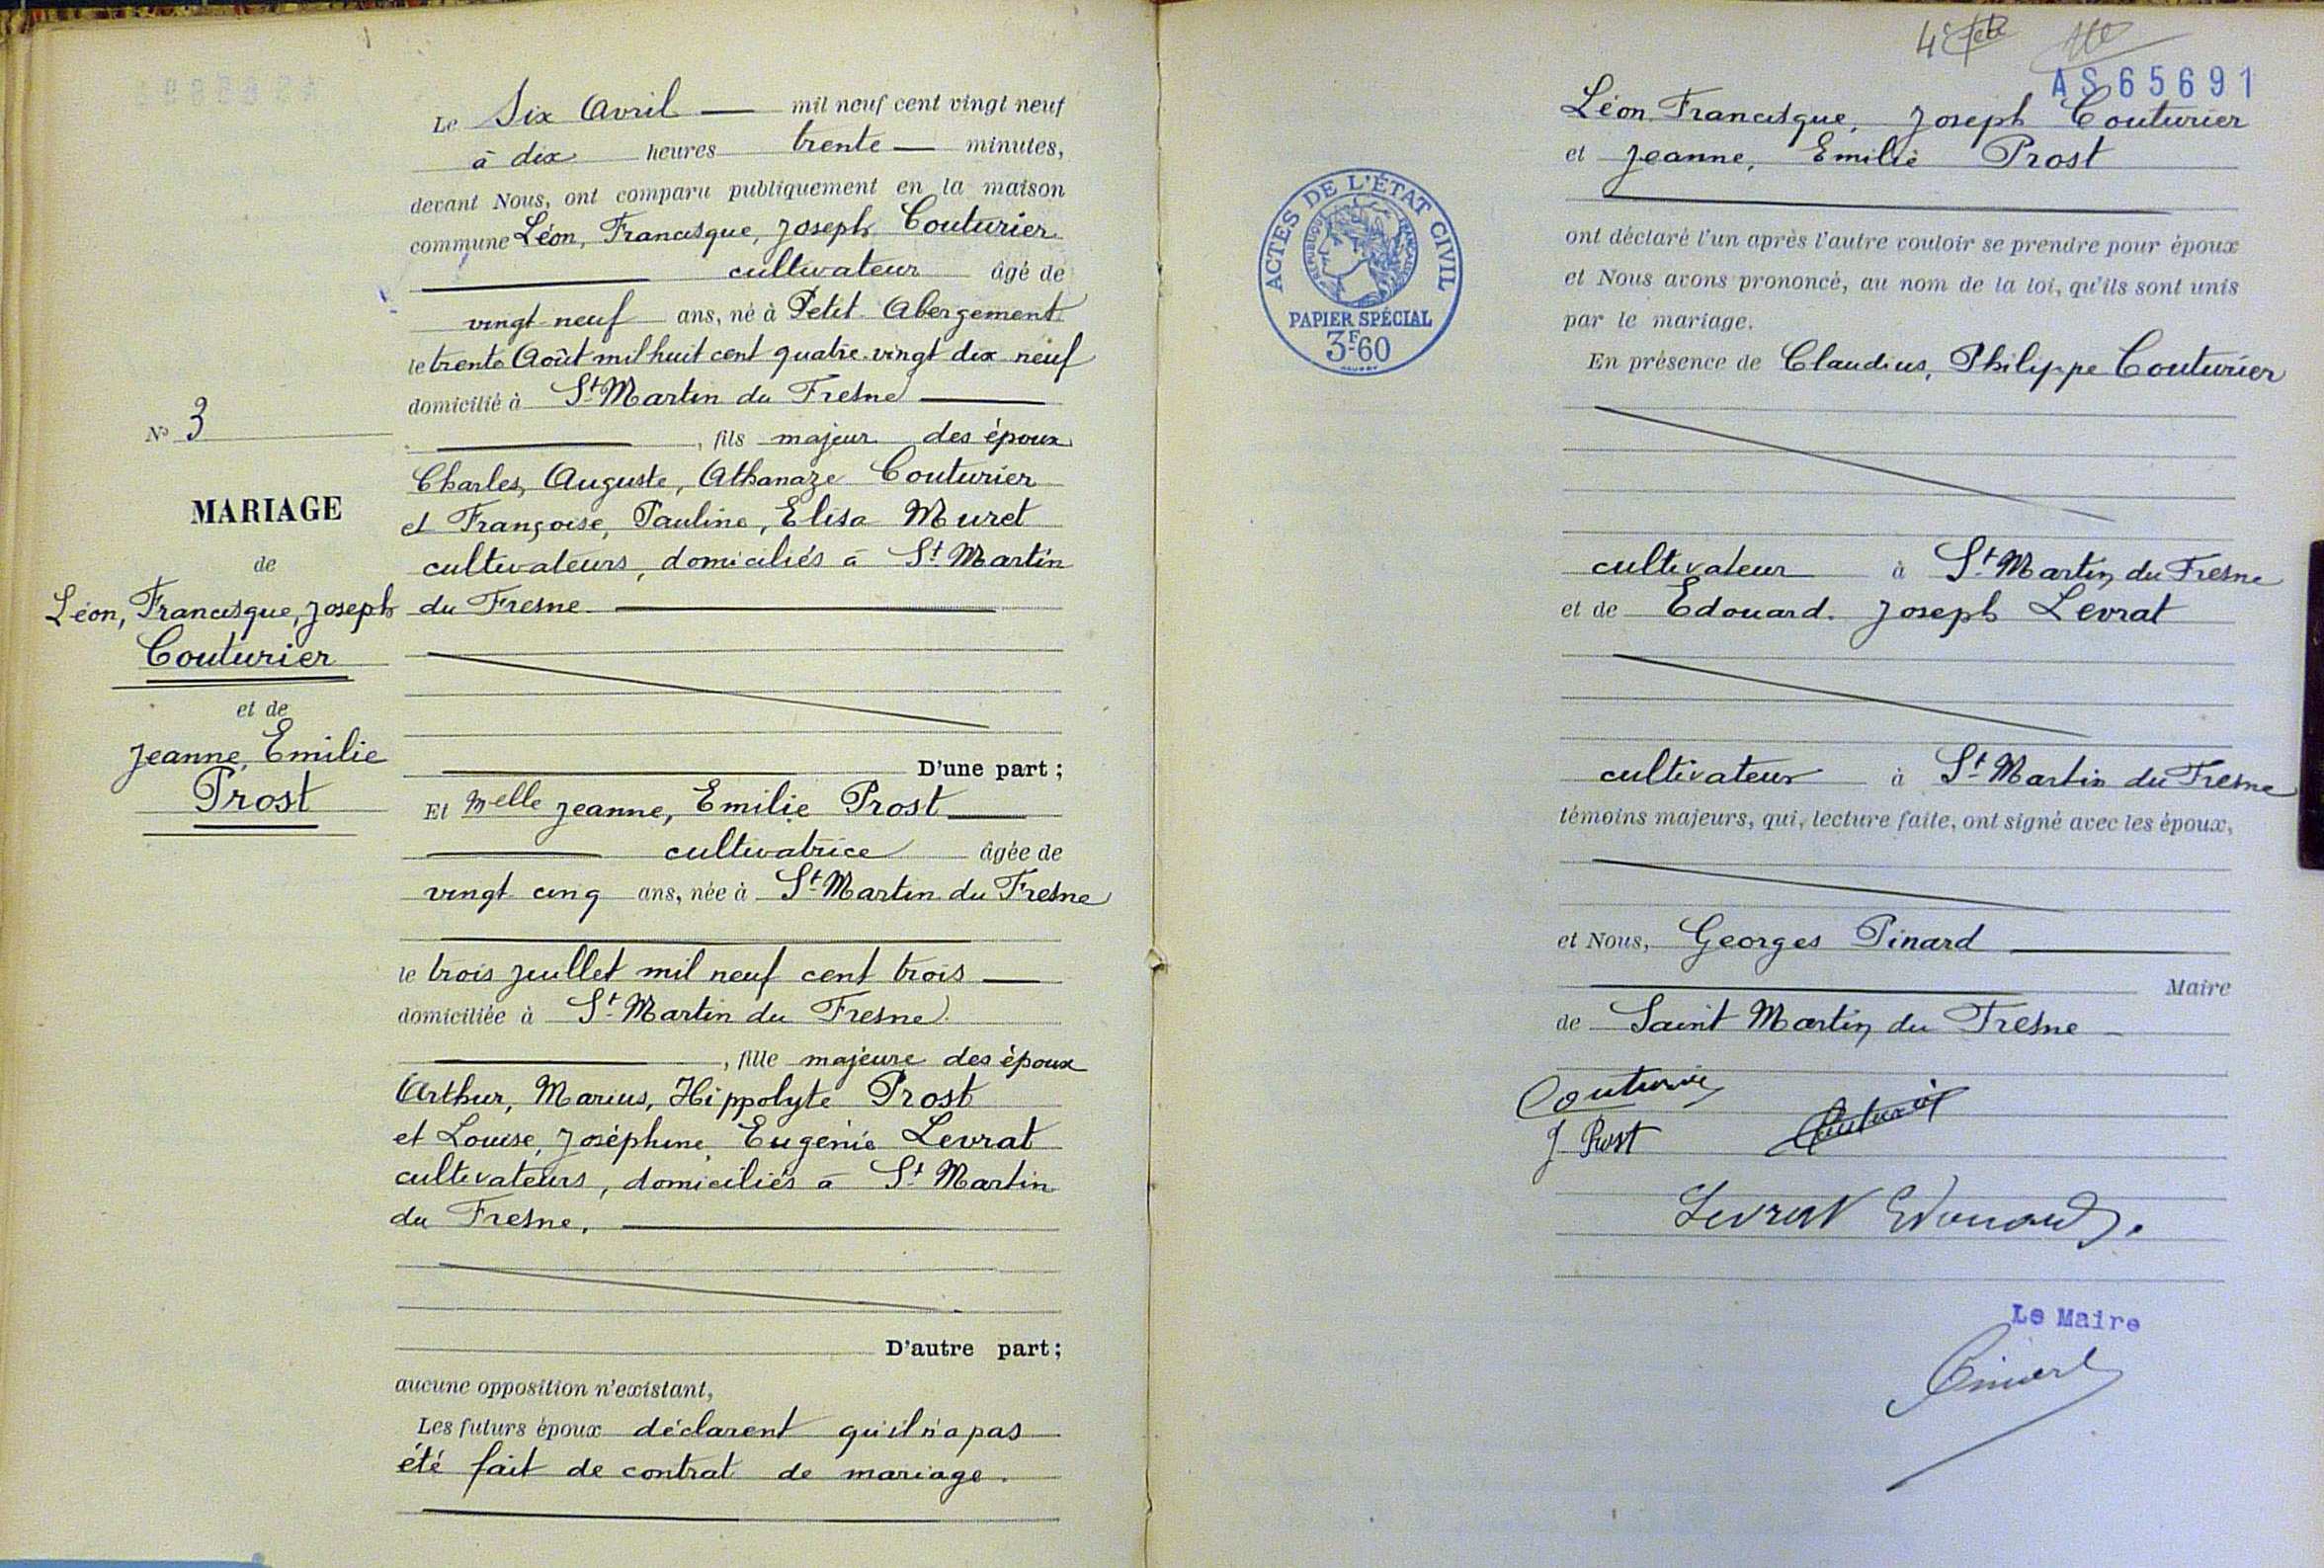 Le Six Avril mil neuf cent vingt neuf
à dix heures trente minutes,
devant Nous, ont comparu publiquement en la maison
commune Léon, Francisque, Joseph Couturier
cultivateur âgé de
vingt-neuf ans, né à Petit Abergement
le trente Août mil huit cent quatre-vingt dix neuf
domicilié à St Martin du Fresne
, fils majeur des époux
Charles, Auguste, Athanaze Couturier
et Françoise, Pauline, Elisa Muret
cultivateurs, domiciliés à St Martin
du Fresne
D'une part ;
Et Melle Jeanne, Emilie Prost
cultivatrice âgée de
vingt cinq ans, née à St Martin du Fresne
le trois Juillet mil neuf cent trois
domiciliée à St Martin du Fresne
, fille majeure des époux
Arthur, Marius, Hippolyte Prost
et Louise, Joséphine, Eugénie Levrat
cultivateurs, domiciliés à St Martin
du Fresne,
D'autre part ;
aucune opposition n'existant,
Les futurs époux déclarent qu'il n'a pas
été fait de contrat de mariage.
No 3
MARIAGE
de
Léon, Francisque, Joseph
Couturier
et de
Jeanne, Emilie
Prost
AS 65691
Léon Francisque, Joseph Couturier
et Jeanne, Emilie Prost
ont déclaré l'un après l'autre vouloir se prendre pour époux
et Nous avons prononcé, au nom de la loi, qu'ils sont unis
par le mariage.
En présence de Claudius, Philippe Couturier
cultivateur à St Martin du Fresne
et de Edouard. Joseph Levrat
cultivateur à St Martin du Fresne
témoins majeurs, qui, lecture faite, ont signé avec les époux,
et Nous, Georges Pinard
Maire
de Saint Martin du Fresne
Couturier
J. Prost
Couturier
Levrat Edouard.
Le Maire
Pinard
ACTES DE L'ÉTAT CIVIL
RÉPUBLIQUE FRANÇAISE
PAPIER SPÉCIAL
3F60